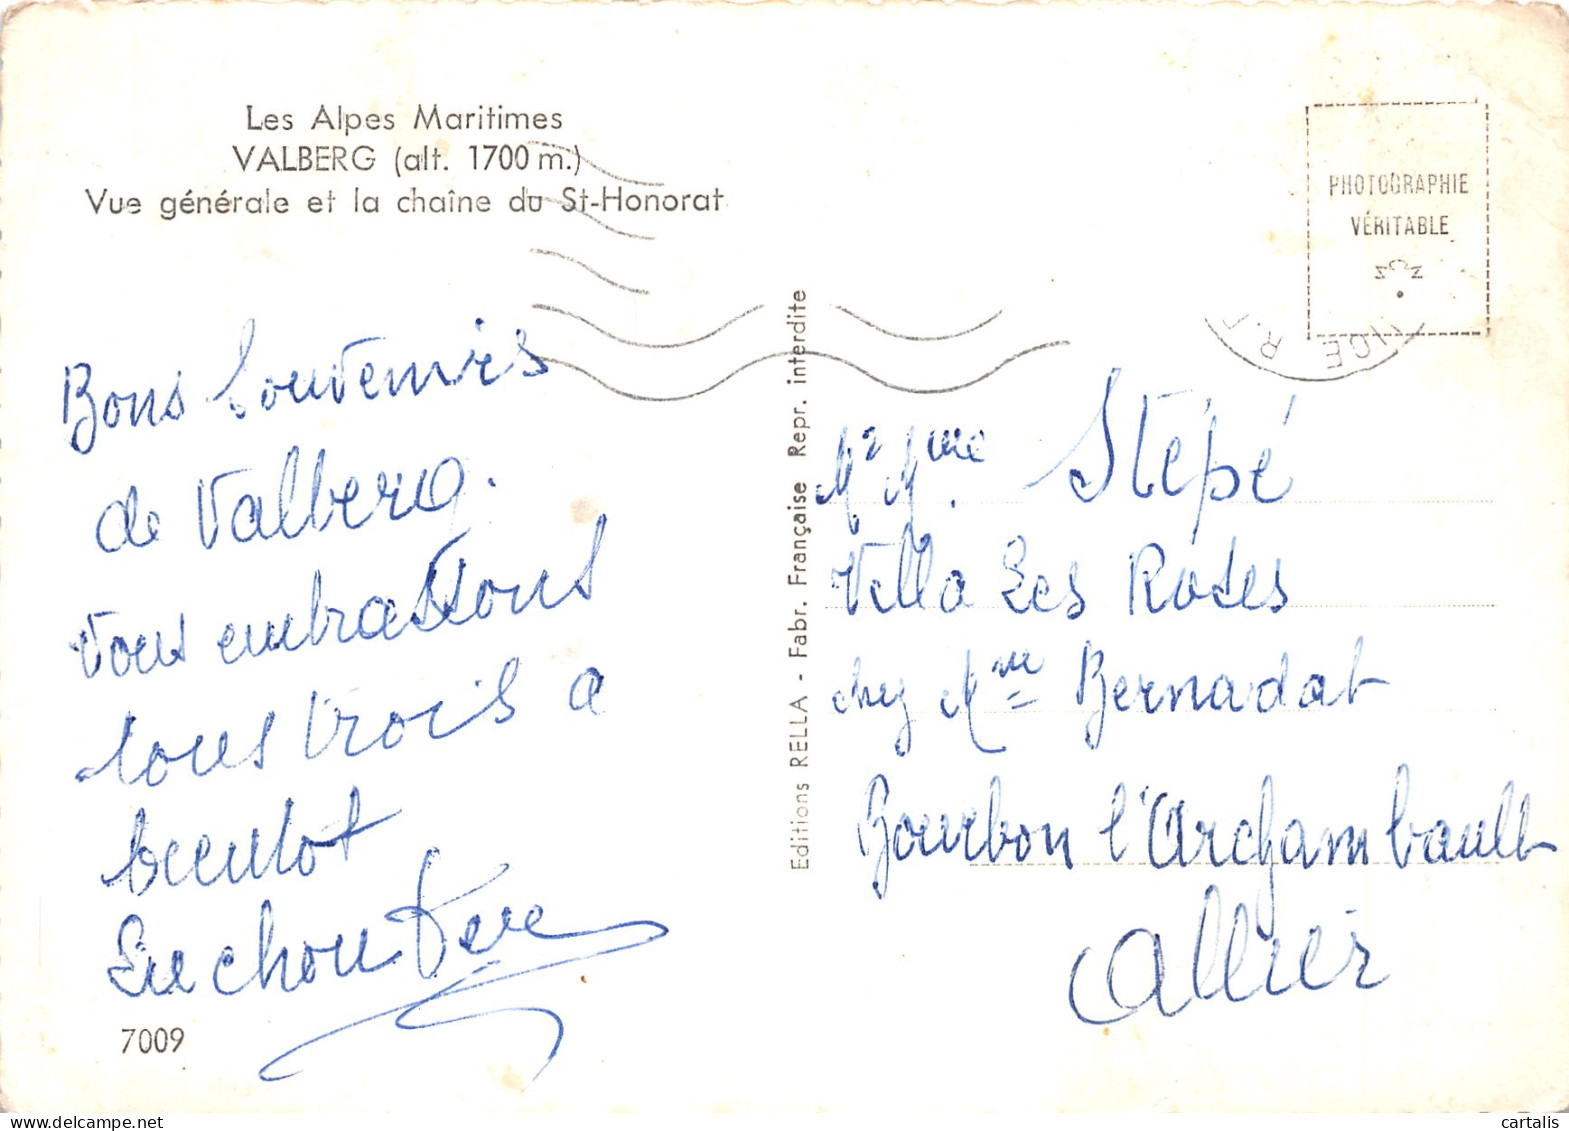 Les Alpes Maritimes
VALBERG (alt. 1700 m.)
Vue générale et la chaîne du St-Honorat
Bons Souvenirs
de Valberg.
Vous embrassons
tous trois a
bientot
7009
Editions RELLA - Fabr. Française Repr. interdite
PHOTOGRAPHIE
VÉRITABLE
Mr Mme Stépé
Villa Les Roses
chez Mme Bernadat
Bourbon l'Archambault
Allier
cartalis